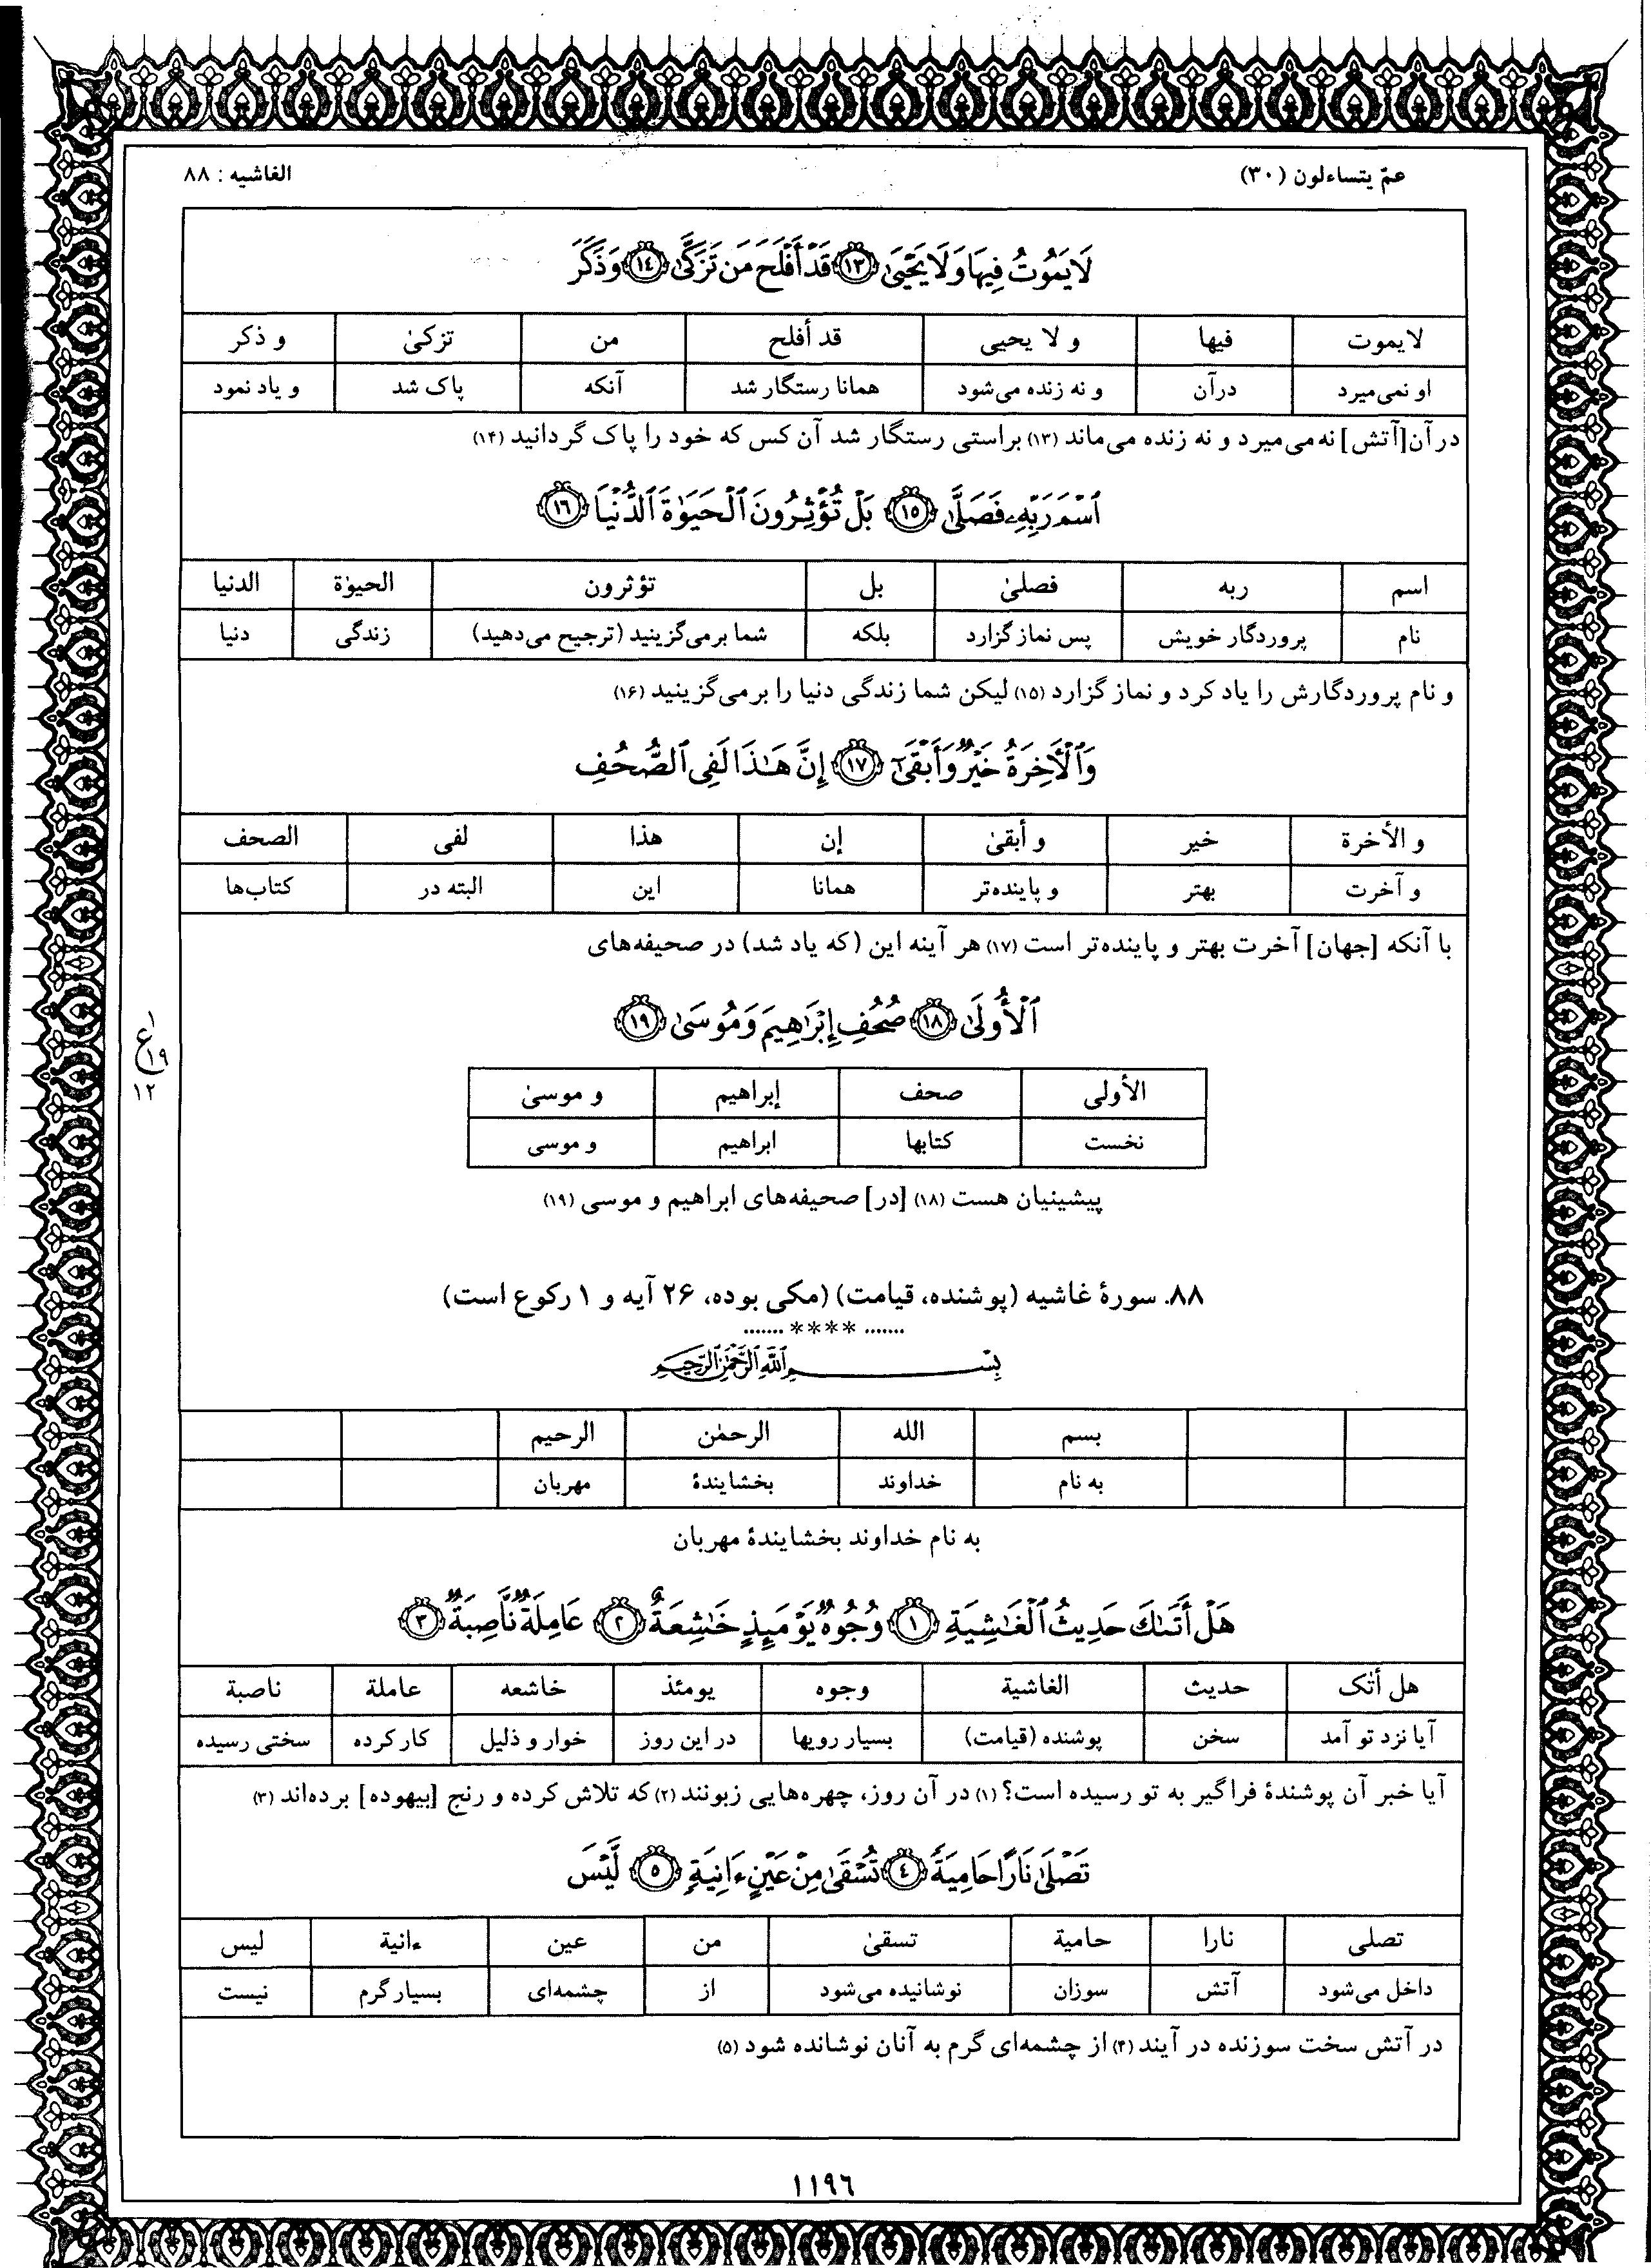 عمّ يتساءلون (٣٠)
الغاشيه : ٨٨
لَا يَمُوتُ فِيهَا وَلَا يَحْيَىٰ ١٣ قَدْ أَفْلَحَ مَن تَزَكَّىٰ ١٤ وَذَكَرَ
لايموت فيها و لا يحيى قد أفلح من تزكىٰ و ذكر
او نمی‌میرد درآن و نه زنده می‌شود همانا رستگار شد آنکه پاک شد و یاد نمود
در آن [آتش] نه می‌میرد و نه زنده می‌ماند (۱۳) براستی رستگار شد آن کس که خود را پاک گردانید (۱۴)
ٱسْمَ رَبِّهِۦ فَصَلَّىٰ ١٥ بَلْ تُؤْثِرُونَ ٱلْحَيَوٰةَ ٱلدُّنْيَا ١٦
اسم ربه فصلىٰ بل تؤثرون الحيوٰة الدنيا
نام پروردگار خویش پس نماز گزارد بلکه شما برمی‌گزینید (ترجیح می‌دهید) زندگی دنیا
و نام پروردگارش را یاد کرد و نماز گزارد (۱۵) لیکن شما زندگی دنیا را برمی‌گزینید (۱۶)
وَٱلْأَخِرَةُ خَيْرٌ وَأَبْقَىٰٓ ١٧ إِنَّ هَـٰذَا لَفِى ٱلصُّحُفِ
و الأخرة خير و أبقىٰ إن هذا لفى الصحف
و آخرت بهتر و پاینده‌تر همانا این البته در کتاب‌ها
با آنکه [جهان] آخرت بهتر و پاینده‌تر است (۱۷) هر آینه این (که یاد شد) در صحیفه‌های
ٱلْأُولَىٰ ١٨ صُحُفِ إِبْرَٰهِيمَ وَمُوسَىٰ ١٩
١
ع
١٩
١٢
الأولى صحف إبراهيم و موسىٰ
نخست کتابها ابراهیم و موسی
پیشینیان هست (۱۸) [در] صحیفه‌های ابراهیم و موسی (۱۹)
۸۸. سورهٔ غاشیه (پوشنده، قیامت) (مکی بوده، ۲۶ آیه و ۱ رکوع است)
....... **** .......
بِسْمِ ٱللَّهِ ٱلرَّحْمَٰنِ ٱلرَّحِيمِ
بسم الله الرحمٰن الرحيم
به نام خداوند بخشایندهٔ مهربان
به نام خداوند بخشایندهٔ مهربان
هَلْ أَتَىٰكَ حَدِيثُ ٱلْغَـٰشِيَةِ ١ وُجُوهٌ يَوْمَئِذٍ خَـٰشِعَةٌ ٢ عَامِلَةٌ نَّاصِبَةٌ ٣
هل أتٰک حديث الغاشية وجوه يومئذ خاشعه عاملة ناصبة
آیا نزد تو آمد سخن پوشنده (قیامت) بسیار رویها در این روز خوار و ذلیل کار کرده سختی رسیده
آیا خبر آن پوشندهٔ فراگیر به تو رسیده است؟ (۱) در آن روز، چهره‌هایی زبونند (۲) که تلاش کرده و رنج [بیهوده] برده‌اند (۳)
تَصْلَىٰ نَارًا حَامِيَةً ٤ تُسْقَىٰ مِنْ عَيْنٍ ءَانِيَةٍ ٥ لَّيْسَ
تصلى نارا حامية تسقىٰ من عين ءانية ليس
داخل می‌شود آتش سوزان نوشانیده می‌شود از چشمه‌ای بسیار گرم نیست
در آتش سخت سوزنده در آیند (۴) از چشمه‌ای گرم به آنان نوشانده شود (۵)
١١٩٦